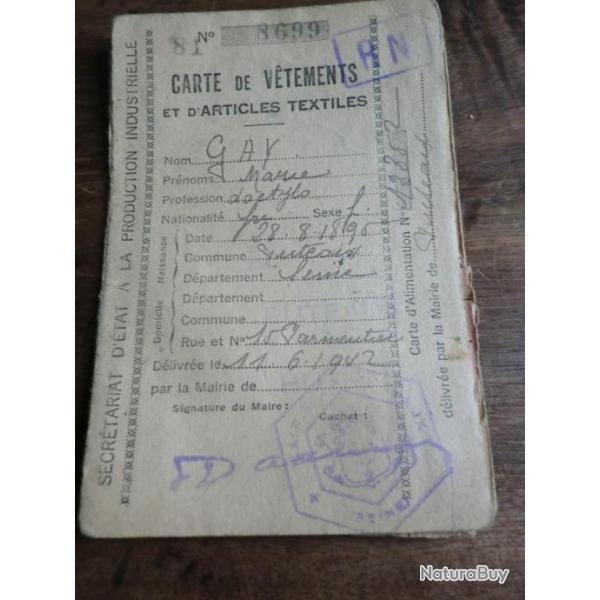 81 No 8699
RN
CARTE DE VÊTEMENTS
ET D'ARTICLES TEXTILES
Nom GAY
Prénoms Marie
Profession dactylo
Nationalité fse Sexe f
Naissance
Date 28.8.1890
Commune Puteaux
Département Seine
Domicile
Département
Commune
Rue et No 10 Parmentier
Délivrée le 11 6.1942
par la Mairie de
Signature du Maire : Cachet :
SECRÉTARIAT D'ÉTAT A LA PRODUCTION INDUSTRIELLE
Carte d'Alimentation No
délivrée par la Mairie de
NaturaBuy